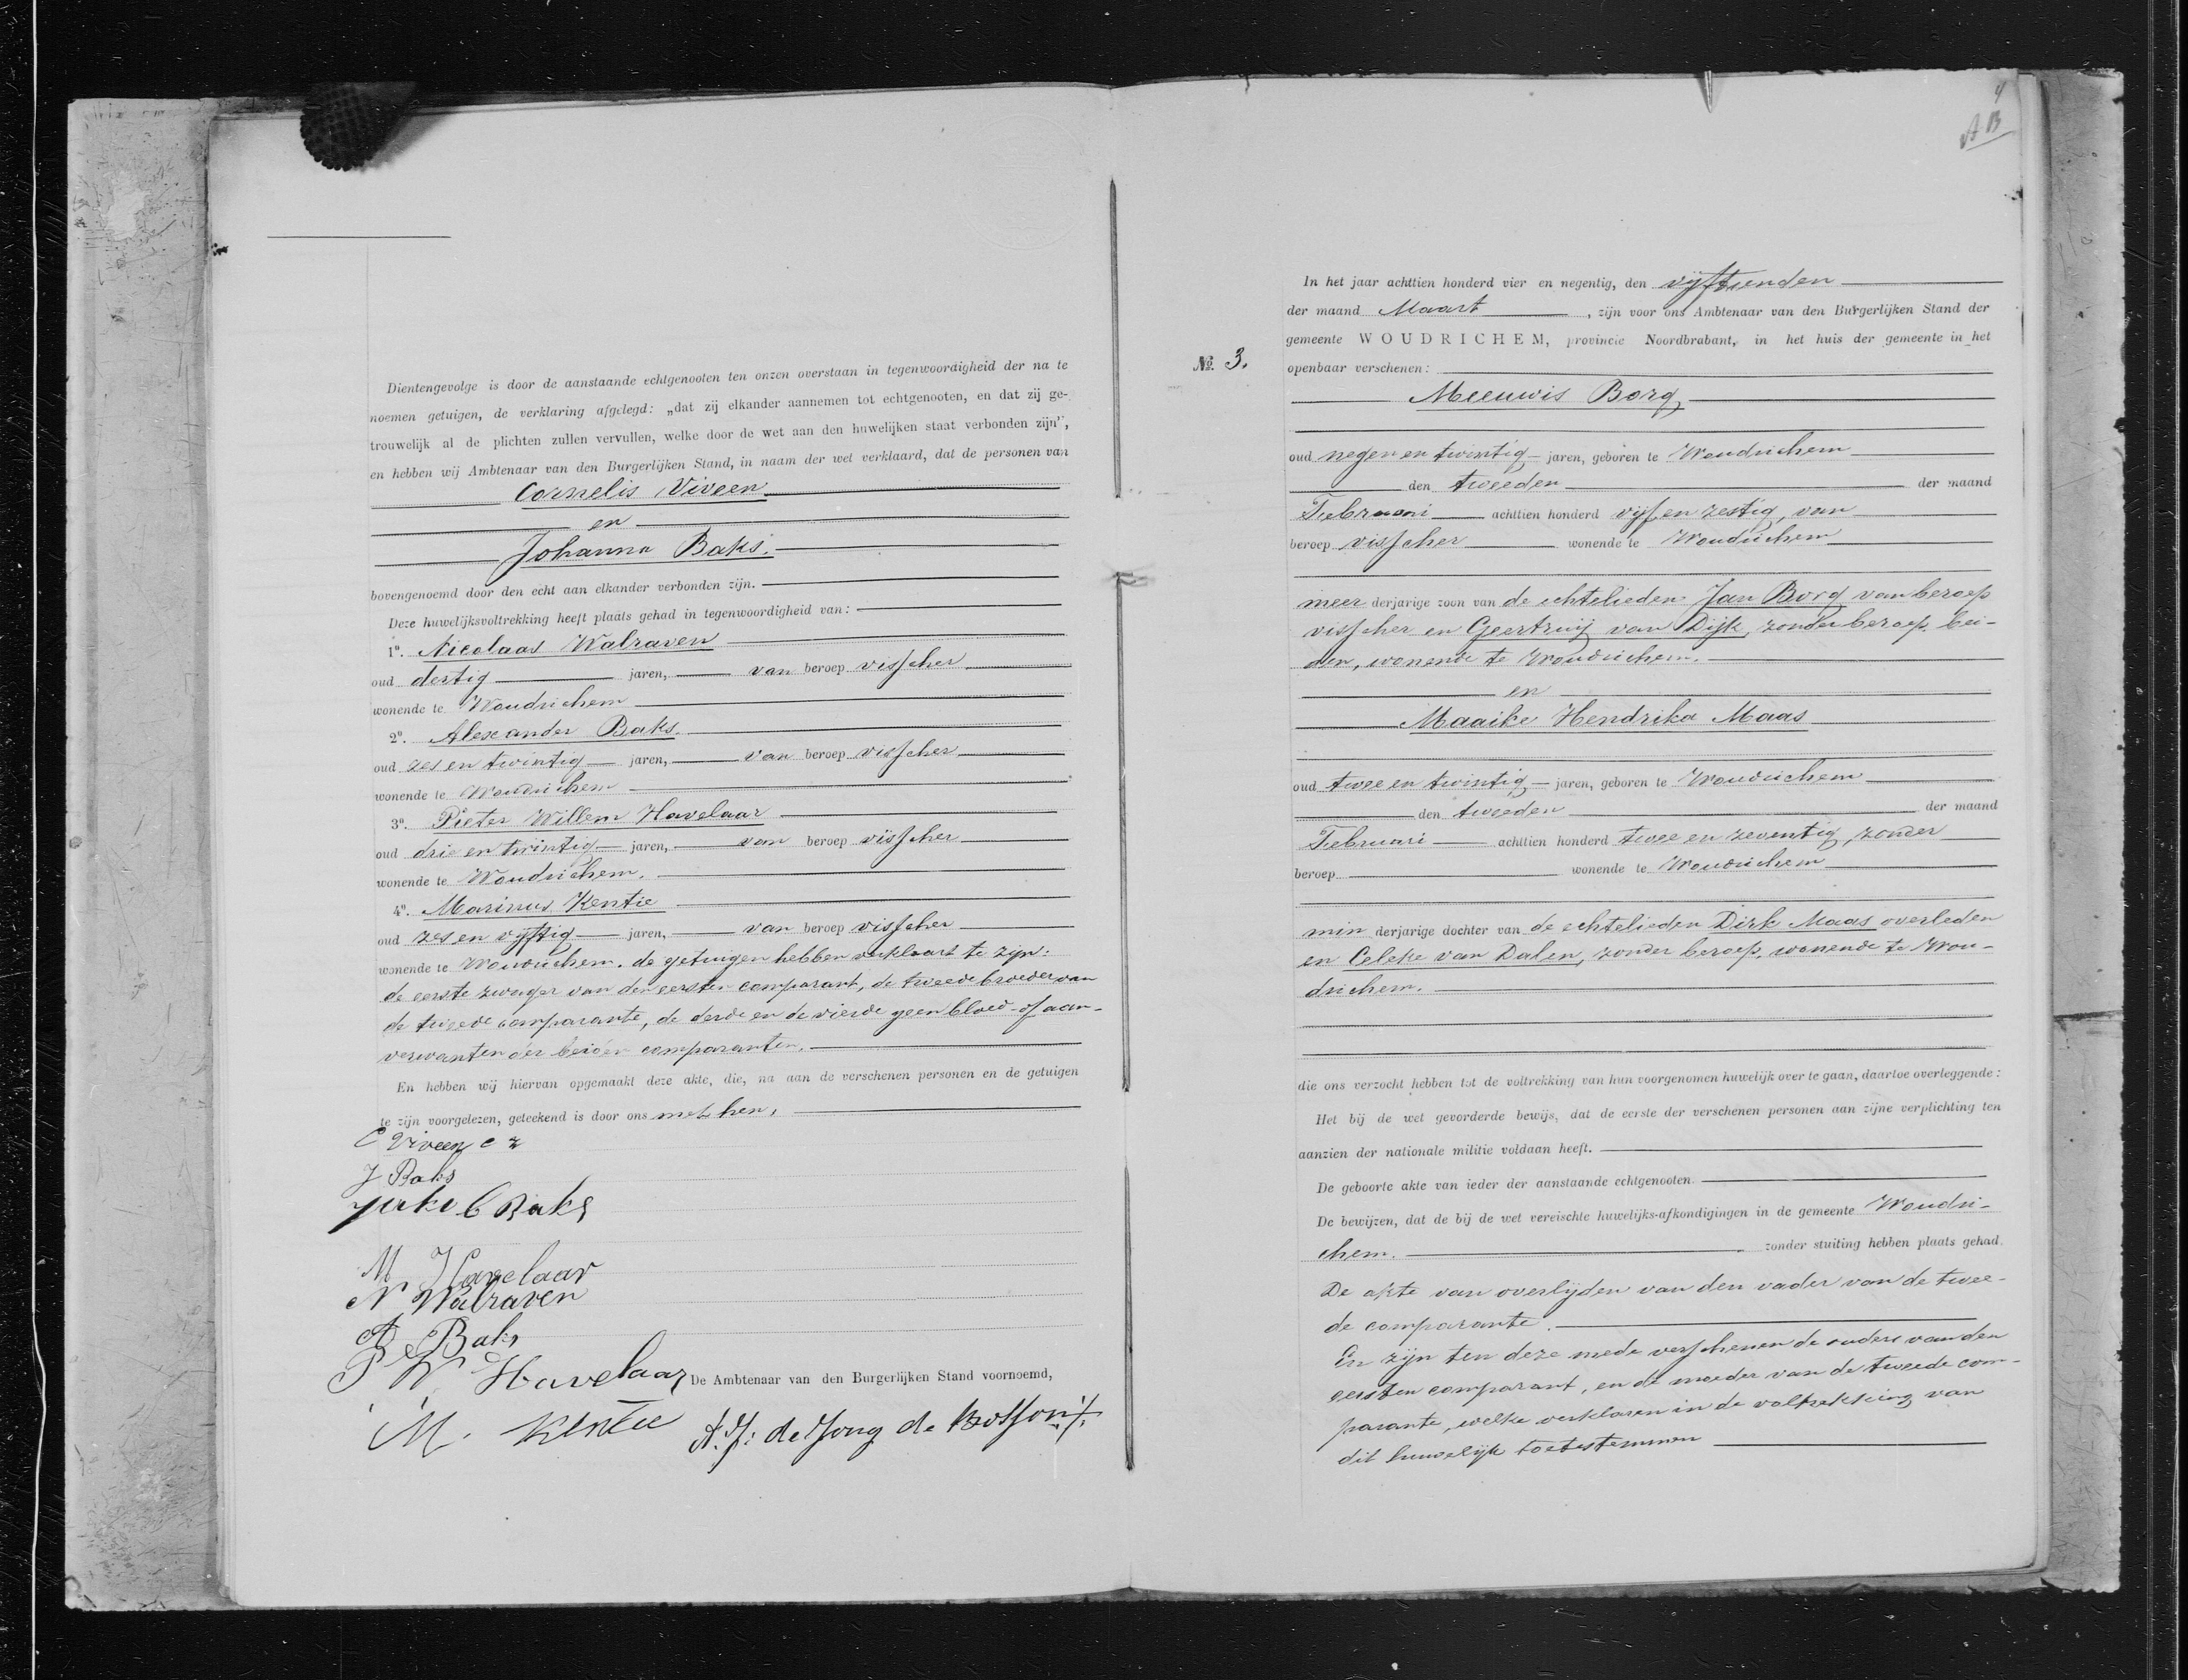 Dientengevolge is door de aanstaande echtgenooten ten onzen overstaan in tegenwoordigheid der na te
noemen getuigen, de verklaring afgelegd: „dat zij elkander aannemen tot echtgenooten, en dat zij ge-
trouwelijk al de plichten zullen vervullen, welke door de wet aan den huwelijken staat verbonden zijn”,
en hebben wij Ambtenaar van den Burgerlijken Stand, in naam der wet verklaard, dat de personen van
Cornelis Viveen
en
Johanna Baks.
bovengenoemd door den echt aan elkander verbonden zijn.
Deze huwelijksvoltrekking heeft plaats gehad in tegenwoordigheid van:
1º. Nicolaas Walraven
oud dertig jaren, van beroep visscher
wonende te Woudrichem
2º. Alexander Baks.
oud zes en twintig jaren, van beroep visscher
wonende te Woudrichem
3º. Pieter Willem Havelaar
oud drie en twintig jaren, van beroep visscher
wonende te Woudrichem.
4º. Marinus Kentie
oud zes en vijftig jaren, van beroep visscher
wonende te Woudrichem. de getuigen hebben verklaart te zijn:
de eerste zwager van den eersten comparant, de tweede broeder van
de tweede comparante, de derde en de vierde geen bloed- of aan-
verwanten der beiden comparanten.
En hebben wij hiervan opgemaakt deze akte, die, na aan de verschenen personen en de getuigen
te zijn voorgelezen, geteekend is door ons met hen,
C Viveen c z
J Baks
C Baks
M Havelaar
N Walraven
A Baks
P W Havelaar De Ambtenaar van den Burgerlijken Stand voornoemd,
M. Kentie de Jong de
4
AB
In het jaar achttien honderd vier en negentig, den vijftienden
der maand Maart, zijn voor ons Ambtenaar van den Burgerlijken Stand der
gemeente WOUDRICHEM, provincie Noordbrabant, in het huis der gemeente in het
№. 3. openbaar verschenen:
Meeuwis Borg,
oud negen en twintig jaren, geboren te Woudrichem
den tweeden der maand
Februari achttien honderd vijf en zestig, van
beroep visscher wonende te Woudrichem
meer derjarige zoon van de echtelieden Jan Borg van beroep
visscher en Geertruij van Dijk, zonder beroep, bei-
den, wonende te Woudrichem.
en
Maaike Hendrika Maas
oud twee en twintig jaren, geboren te Woudrichem
den tweeden der maand
Februari achttien honderd twee en zeventig, zonder
beroep wonende te Woudrichem
min derjarige dochter van de echtelieden Dirk Maas overleden
en Celeke van Dalen, zonder beroep, wonende te Wou-
drichem.
die ons verzocht hebben tot de voltrekking van hun voorgenomen huwelijk over te gaan, daartoe overleggende:
Het bij de wet gevorderde bewijs, dat de eerste der verschenen personen aan zijne verplichting ten
aanzien der nationale militie voldaan heeft.
De geboorte akte van ieder der aanstaande echtgenooten.
De bewijzen, dat de bij de wet vereischte huwelijks-afkondigingen in de gemeente Woudri-
chem. zonder stuiting hebben plaats gehad.
De akte van overlijden van den vader van de twee-
de comparante.
En zijn ten deze mede verschenen de ouders van den
eersten comparant, en de moeder van de tweede com-
parante, welke verklaren in de voltrekking van
dit huwelijk toetestemmen